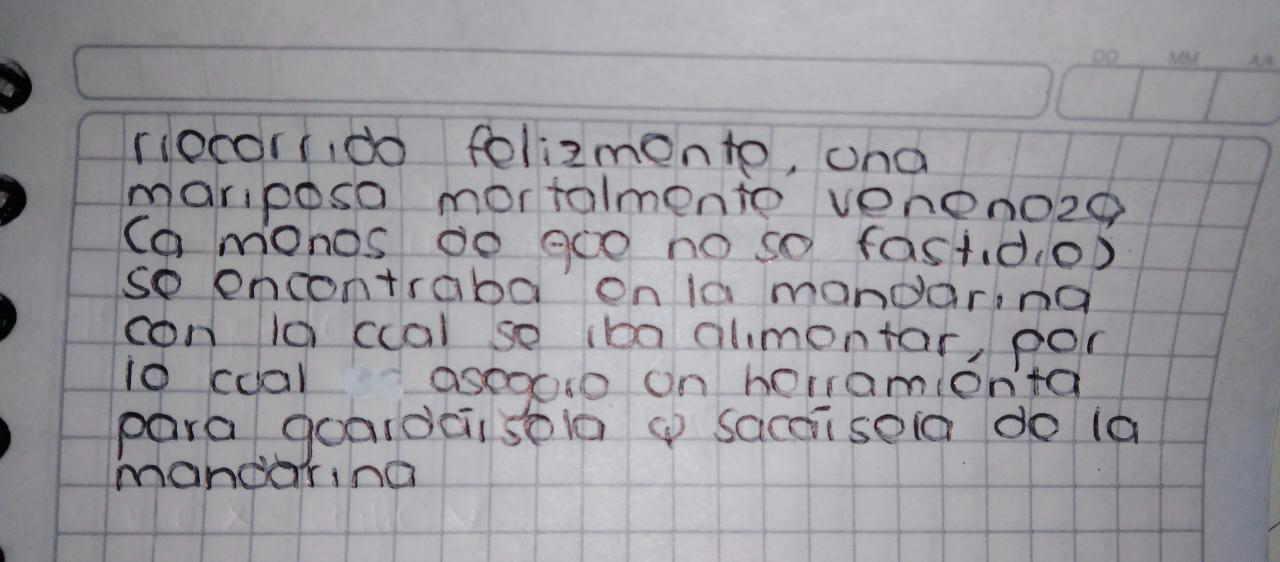 DD MM AA
riocorrido felizmente, una
mariposa mortalmente venenoza
(a menos de que no se fastidie)
se encontraba en la mandarina
con la cual se iba alimentar, por
lo cual aseguro un herramienta
para guardársela y sacársela de la
mandarina